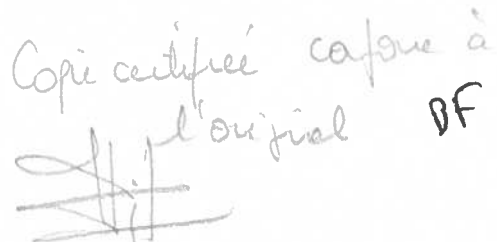 Copie certifiée conforme à
l'original BF